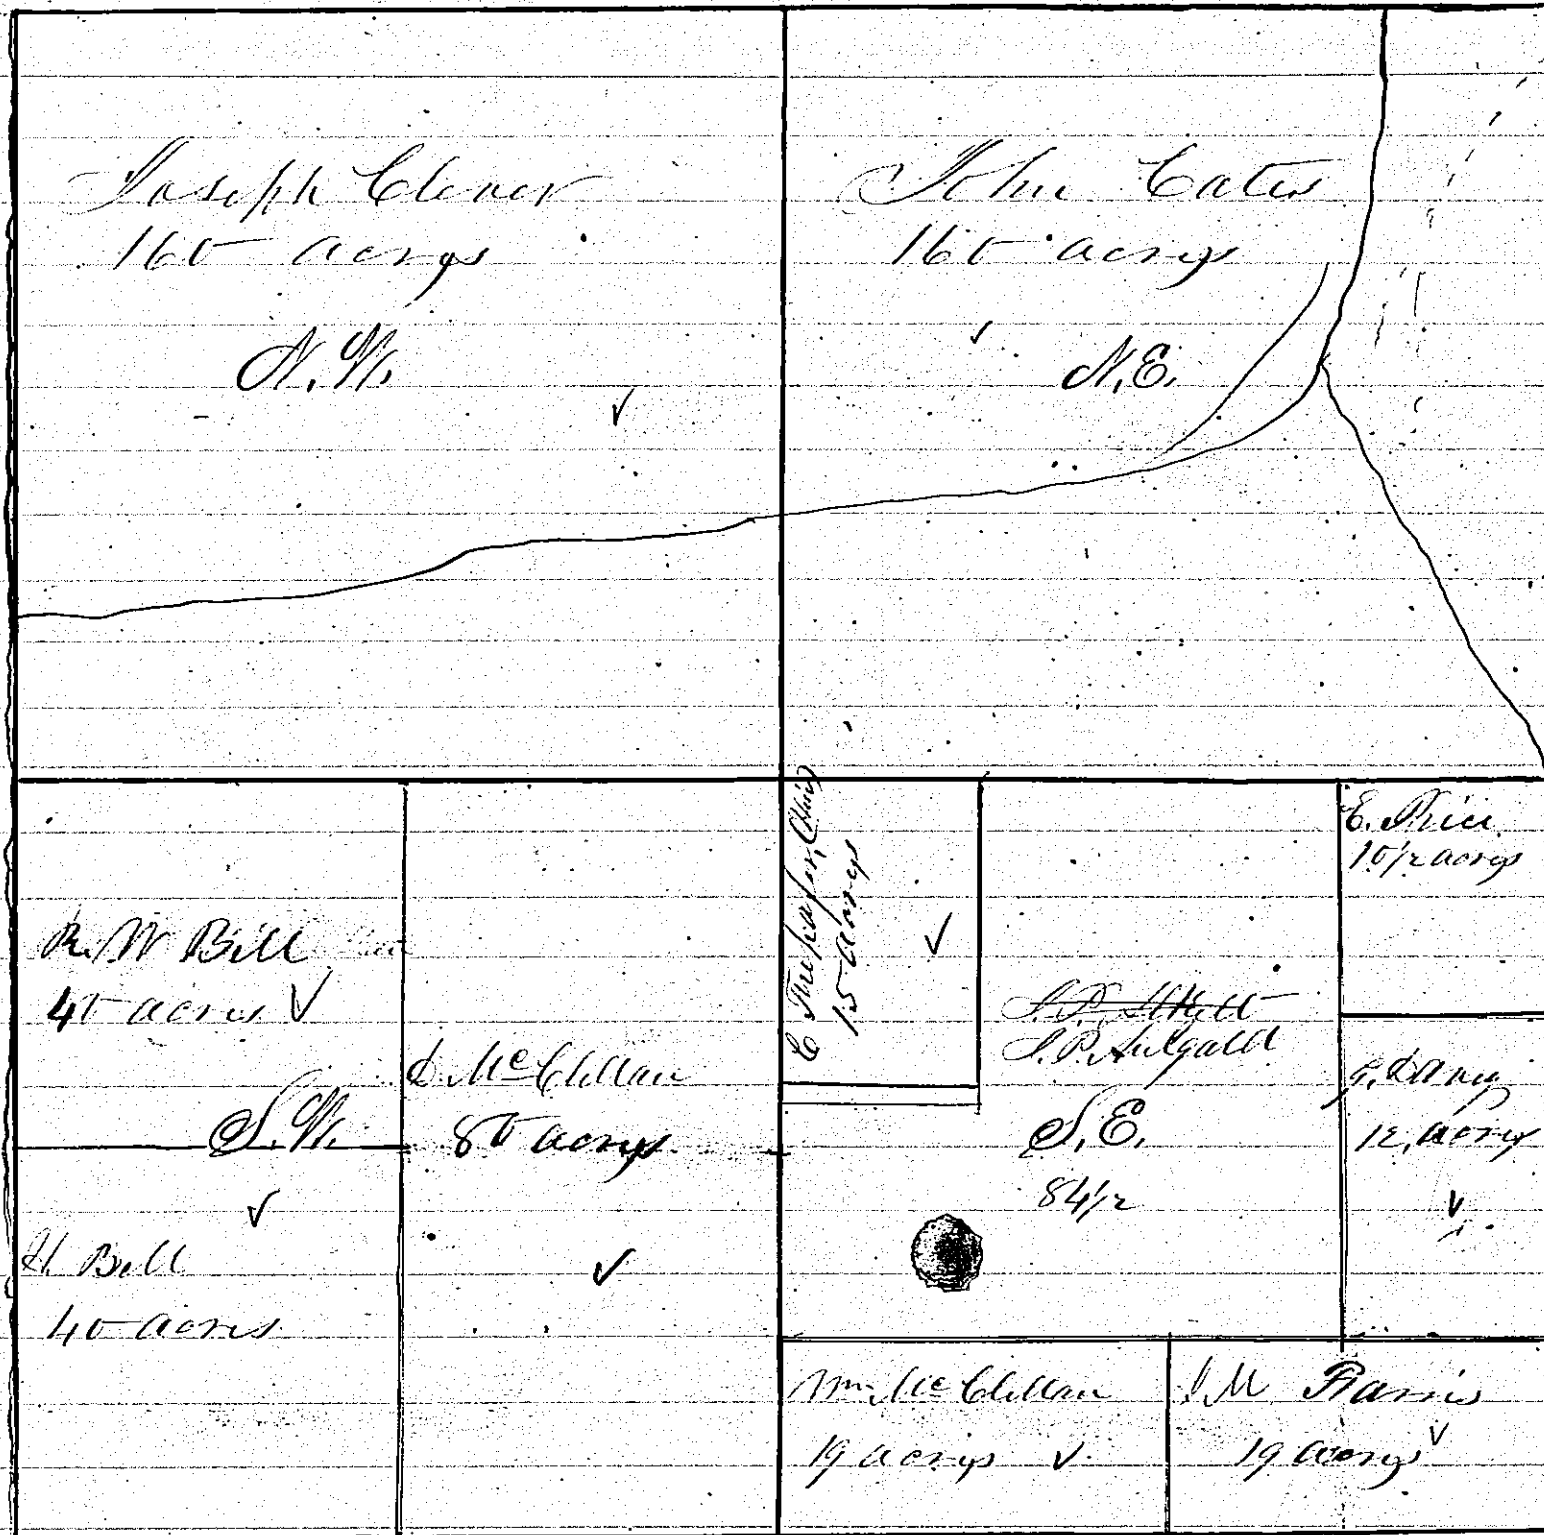 Joseph Clever
160 acres
N.W.
John Cates
160 acres
N.E.
R. W Bill
40 acres
S.W.
H. Bell
40 acres
D. McClellan
80 acres
C
15 acres
S. P.
S.E.
84 1/2
E. Price
10 1/2 acres
12 acres
Wm McClellan
19 acres
J M Farris
19 acres